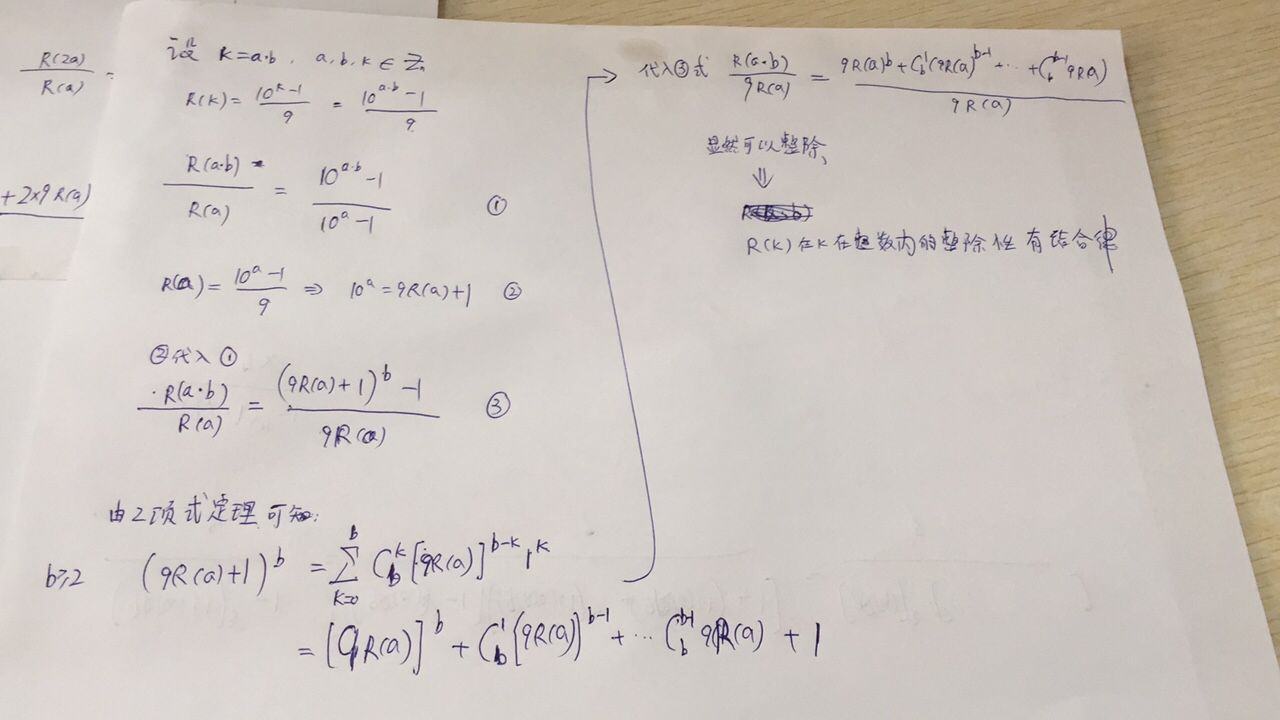 R(2a)/R(a) =
+ 2×9R(a)
设 K=a·b, a,b,k ∈ Z
R(k) = (10^k - 1)/9 = (10^(a·b) - 1)/9
R(a·b)/R(a) = (10^(a·b) - 1)/(10^a - 1) ①
R(a) = (10^a - 1)/9 ⇒ 10^a = 9R(a)+1 ②
②代入①
R(a·b)/R(a) = ((9R(a)+1)^b - 1)/(9R(a)) ③
由2项式定理可知:
b≥2 (9R(a)+1)^b = ∑_{K=0}^{b} C_b^k [9R(a)]^(b-k) 1^k
= [9R(a)]^b + C_b^1 [9R(a)]^(b-1) + ··· C_b^(b-1) 9R(a) + 1
→ 代入③式 R(a·b)/(9R(a)) = (9R(a)^b + C_b^1 (9R(a))^(b-1) + ··· + C_b^(b-1) 9R(a))/(9R(a))
显然可以整除,
⇓
R(k) 在K在整数内的整除性有结合律